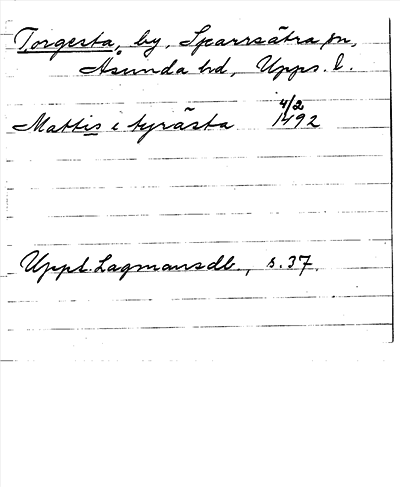 Torgesta, by, Sparrsätra sn,
Åsunda hd, Upps. l.
4/2
Mattis i tyrästa 1492
Uppl. Lagmansdb., s. 37.